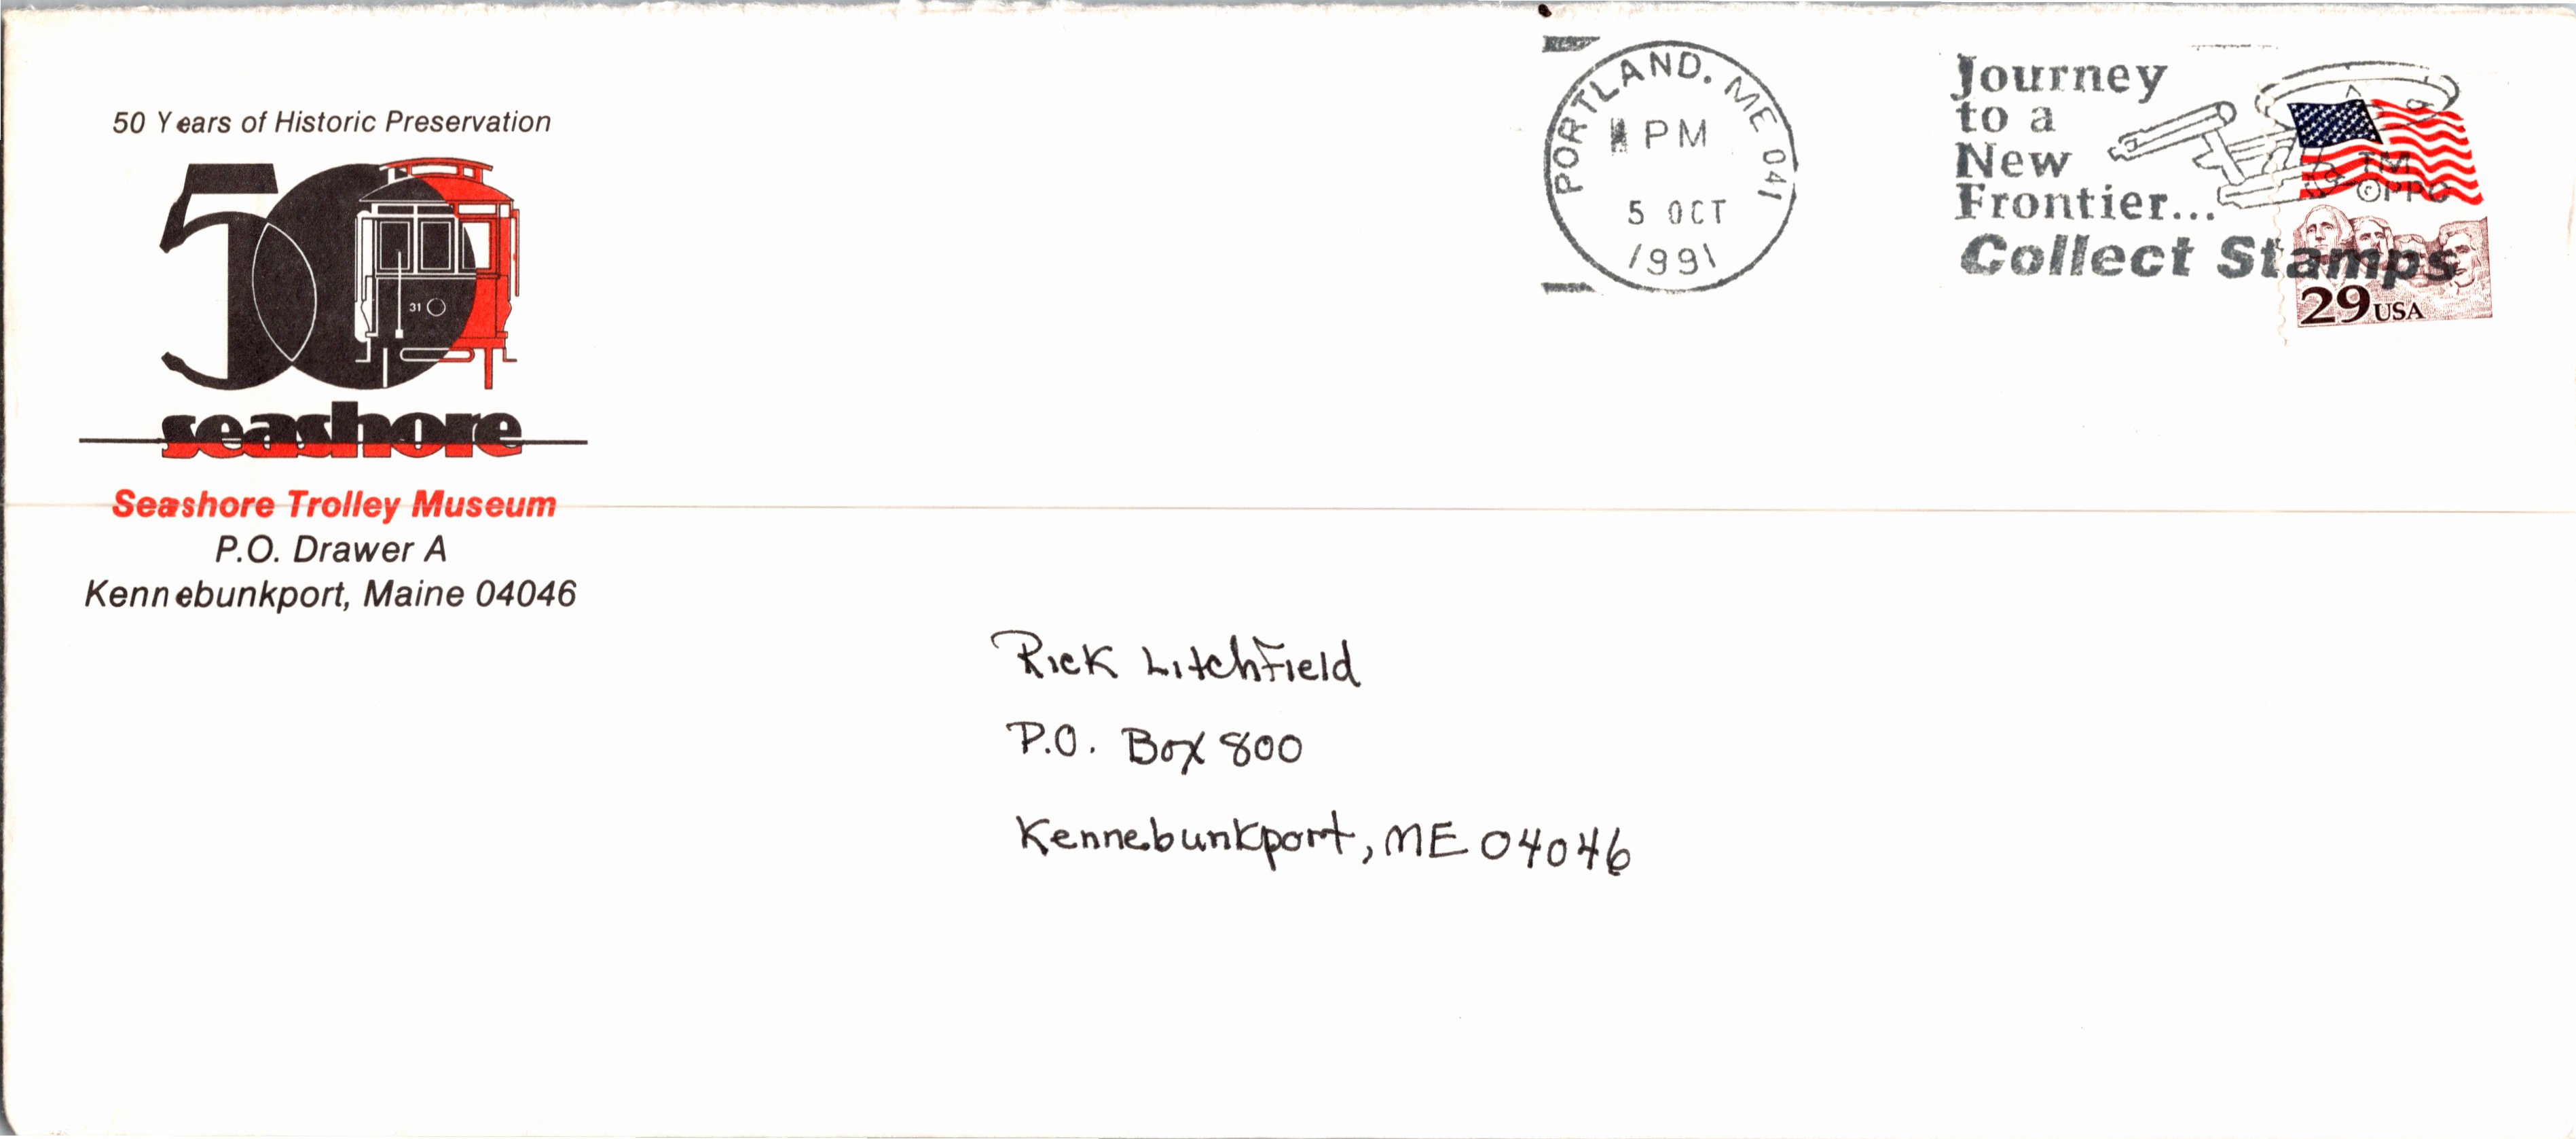 50 Years of Historic Preservation
50
31
seashore
Seashore Trolley Museum
P.O. Drawer A
Kennebunkport, Maine 04046
PORTLAND. ME 041
PM
5 OCT
1991
Journey
to a
New
Frontier...
Collect Stamps
TM
©PPC
29 USA
Rick Litchfield
P.O. Box 800
Kennebunkport, ME 04046